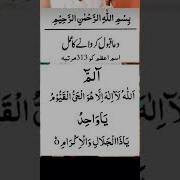 بِسْمِ اللّٰهِ الرَّحْمٰنِ الرَّحِيْمِ
دعا قبول کروانے کا عمل
اسم اعظم کو 313 مرتبہ
الٓمّٓ
اَللهُ لَآ اِلٰهَ اِلَّا هُوَ الْحَیُّ الْقَیُّوْمُ
یَا وَاحِدُ
یَا ذَاالْجَلَالِ وَالْاِکْرَامِ